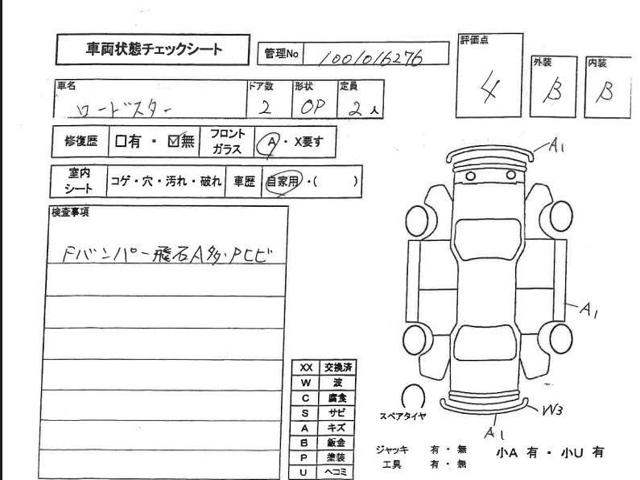 車両状態チェックシート
管理No 1001016276
評価点 4
外装 B
内装 B
車名 ロードスター
ドア数 2
形状 OP
定員 2人
修復歴 □有・☑無
フロントガラス A・X要す
室内シート コゲ・穴・汚れ・破れ
車歴 自家用・( )
検査事項
Fバンパー飛石A多・PCビ
A1
A1
W3
A1
XX 交換済
W 波
C 腐食
S サビ
A キズ
B 鈑金
P 塗装
U ヘコミ
スペアタイヤ
ジャッキ 有・無
工具 有・無
小A 有・小U 有